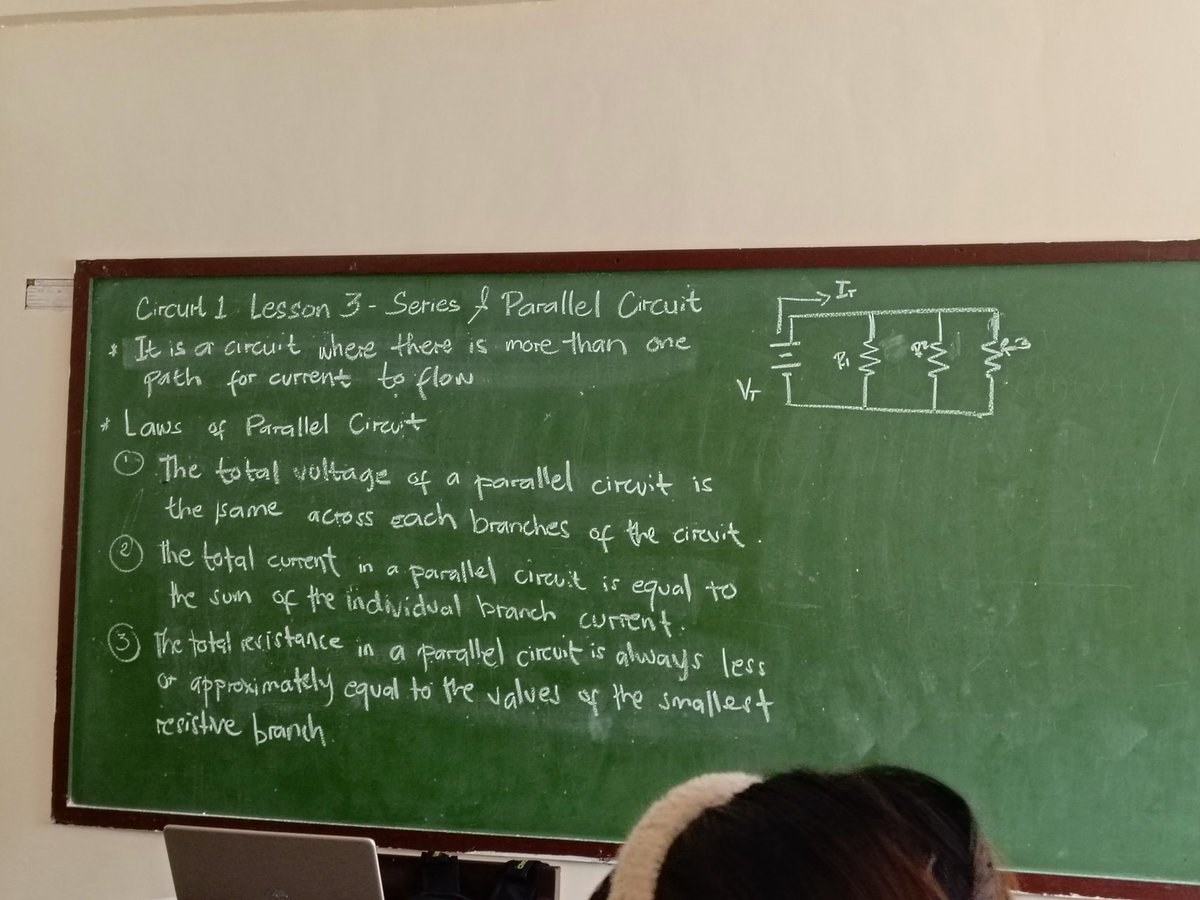 Circuit 1 Lesson 3 - Series & Parallel Circuit
* It is a circuit where there is more than one
path for current to flow
* Laws of Parallel Circuit
① The total voltage of a parallel circuit is
the same across each branches of the circuit.
② The total current in a parallel circuit is equal to
the sum of the individual branch current.
③ The total resistance in a parallel circuit is always less
or approximately equal to the values of the smallest
resistive branch
IT
VT
R1
R2
R3